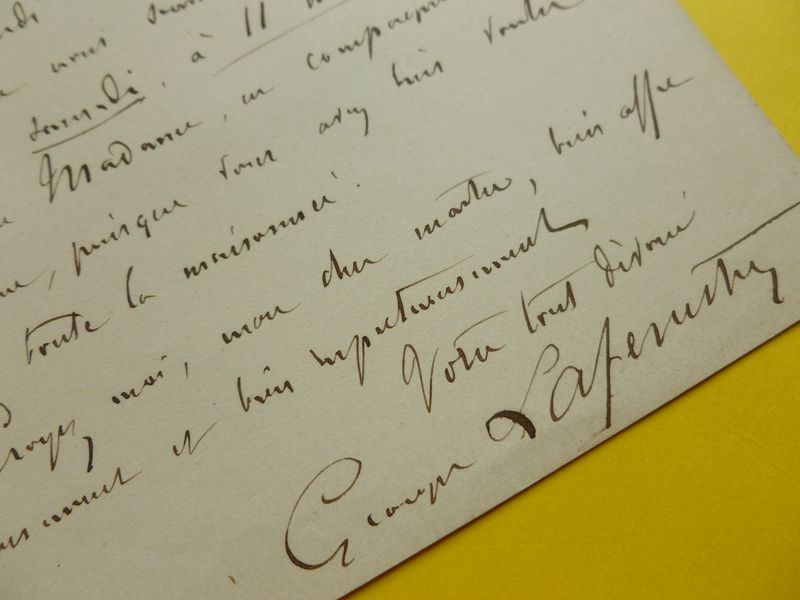 nous
samedi, à 11
Madame, en compagnie
puisque vous avez bien voulu
toute la maisonnée.
Croyez moi, mon cher maître, bien affec
et bien respectueusement
Votre tout dévoué
Georges Lafenestre